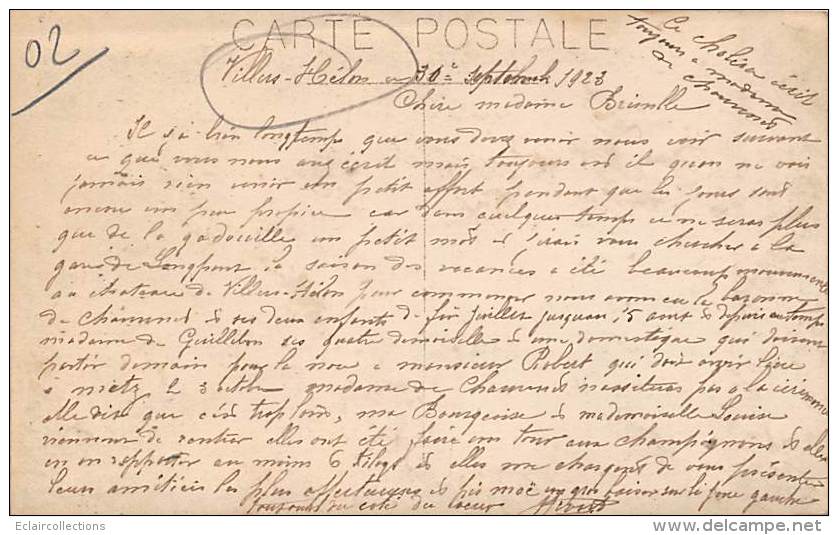 CARTE POSTALE
02
Ce choléra écrit
toujours a madame
de Chauvenes
Villers-Hélon ce 30e septembre 1923
Chère madame Brunelle
Il y a bien longtemps que vous devez venir nous voir suivant
ce que vous nous avez écrit mais toujours es il quon ne vois
jamais rien venir un petit effort pendant que les jours sont
encore un peu propice car dans quelque temps ce ne seras plus
que de la gadouille un petit mot et j'irais vous chercher a la
gare de Longpont la saison des vacances a été beaucoup mouvementé
au chateau de Villers-Hélon pour commencer nous avons eu la baronne
de et ses deux enfants de fin juillet jusquau 15 aout et depuis ce temps
madame de Guillebon ses quatre demoiselle et une domestique qui doivent
partir demain pour la noce a monsieur Robert qui doit avoir lieu
a metz le 3 octobre madame de n'assiteras pas a la cérémonie
elle dit que cest trop loin, ma Bourgeoise et mademoiselle Louise
viennent de rentrer elles ont été faire un tour aux champignons et elles
en on rapporter au moins 6 kilogs et elles me chargent de vous présenter
leurs amitiées les plus affectueuses et pis moë un gros baison sur la joue gauche
toujours du coté du coeur
Eclaircollections
www.delcampe.net